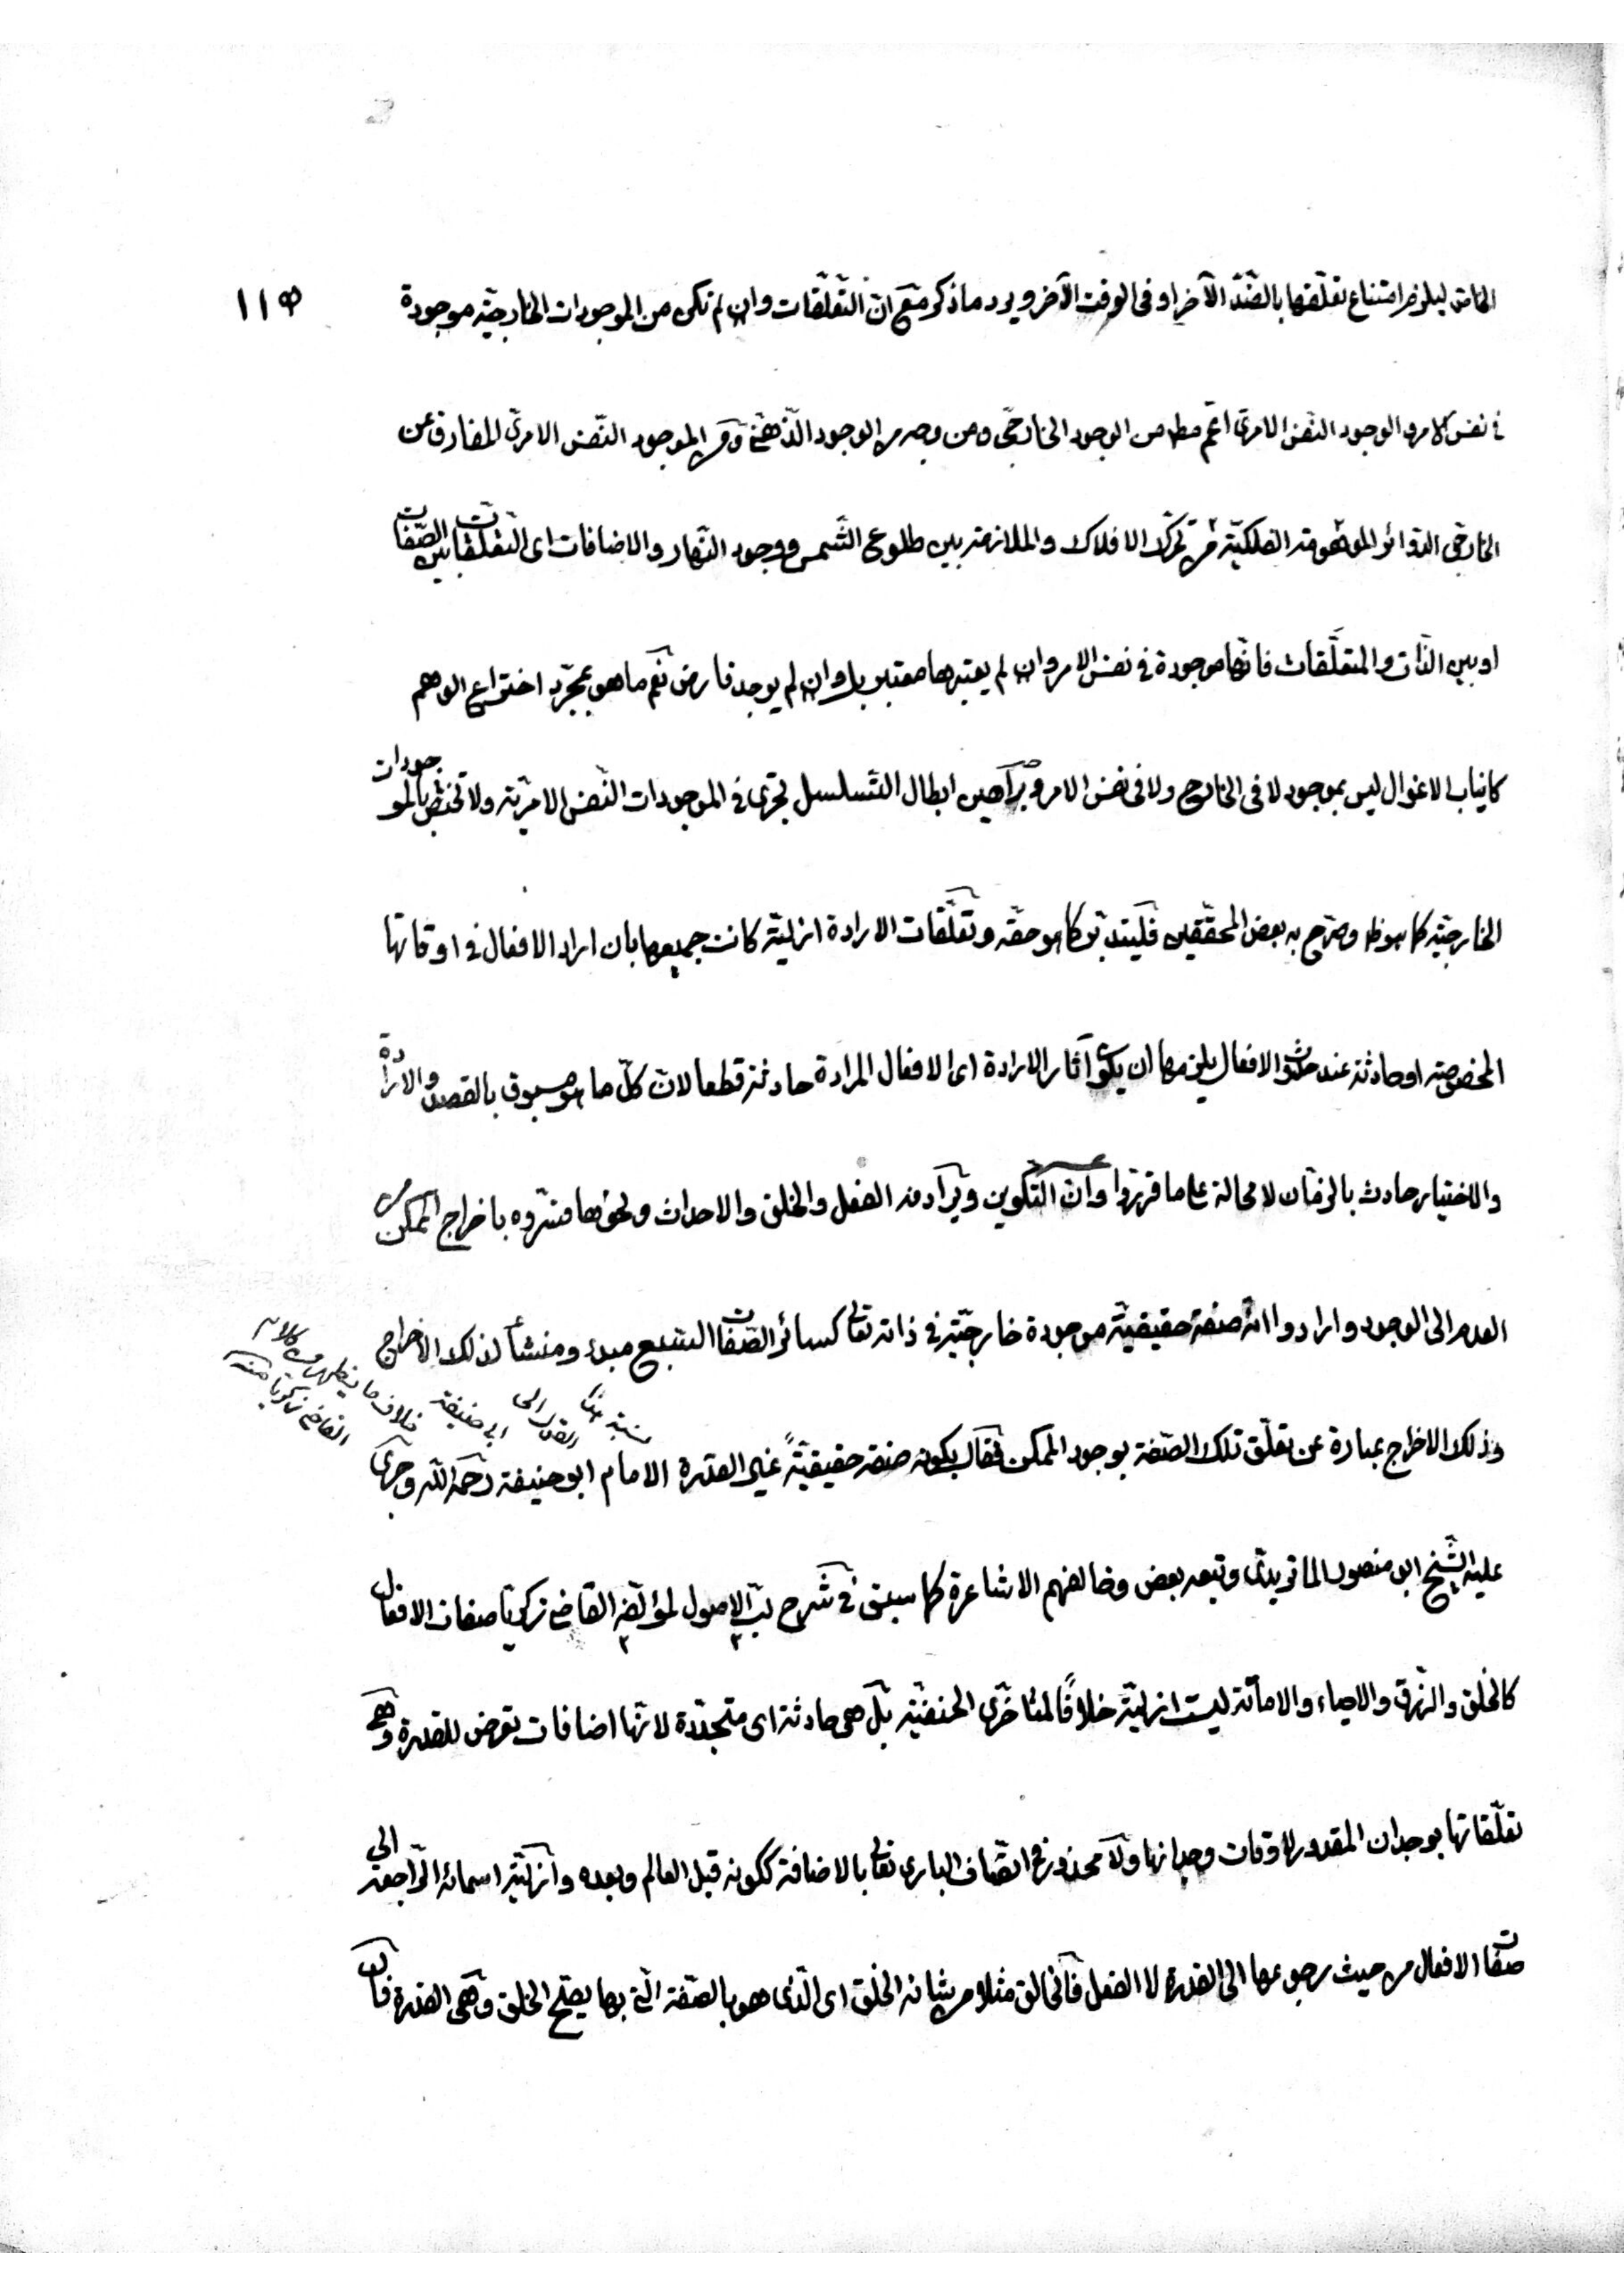 ١١٥
الخاص ليلزم امتناع تعلقها بالضدّ الآخر او فى الوقت الآخر ويرد ما ذكر مع انّ التعلّقات وان لم تكن من الموجودات الخارجيّة موجودة
فى نفس الامر والوجود النفس الامرىّ اعمّ مط من الوجود الخارجىّ ومن وجه من الوجود الذّهنىّ ومن الموجود النّفس الامرىّ المفارق عن
الخارجى الدّوائر الموهومة الفلكيّة تحرّك الافلاك والملازمة بين طلوع الشّمس ووجود النّهار والاضافات اى التعلّقات بين الصّفات
او بين الذّات والمتعلّقات فانّها موجودة فى نفس الامر وان لم يعتبرها معتبر بل وان لم يوجد فارض نعم ما هو بمجرّد اختراع الوهم
كانياب الاغوال ليس بموجود لا فى الخارج ولا فى نفس الامر وبراهين ابطال التّسلسل تجرى فى الموجودات النّفس الامريّة ولا تختصّ بالموجودات
الخارجيّة كما هو ظ وصرّح به بعض المحقّقين فليتدبّر كما هو حقّه وتعلّقات الارادة ازليّة كانت جميعها بان اراد الافعال فى اوقاتها
المخصوصة او حادثة عند حدوث الافعال يلزمها ان يكون آثار الارادة اى الافعال المرادة حادثة قطعا لانّ كلّ ما هو مسبوق بالقصد والارادة
والاختيار حادث بالزمان لا محالة على ما قرّروا وانّ التّكوين ويراد منه الفعل والخلق والاحداث ونحوها فسّروه باخراج الممكن من
العدم الى الوجود وارادوا انّه صفة حقيقيّة موجودة خارجيّة فى ذاته تعالى كسائر الصّفات السّبع مبدء ومنشأ لذلك الاخراج
وذلك الاخراج عبارة عن تعلّق تلك الصّفة بوجود الممكن فقال بكونه صفة حقيقيّةً غير القدرة الامام ابو حنيفة رحمه اللّه وجرى
نسبة هذا القول الى ابى حنيفة خلاف ما يظهر من كلام القاضى زكريا منه
عليه الشّيخ ابو منصور الماتريدىّ وتبعه بعض وخالفهم الاشاعرة كما سبق فى شرح لبّ الاصول لمؤلّفه القاضى زكريّا صفات الافعال
كالخلق والرّزق والاحياء والاماتة ليست ازليّة خلافًا لمتأخّرى الحنفيّة بل هى حادثة اى متجدّدة لانّها اضافات تعرض للقدرة وهى
تعلّقاتها بوجدان المقدور لاوقات وجدانها ولا محذور فى اتّصاف البارى تعالى بالاضافة ككونه قبل العالم وبعده وازليّة اسمائه الرّاجعة الى
صفات الافعال من حيث رجوعها الى القدرة لا الفعل فالخالق مثلا من شانه الخلق اى الّذى هو بالصّفة الّتى بها يصلح الخلق وهى القدرة فان